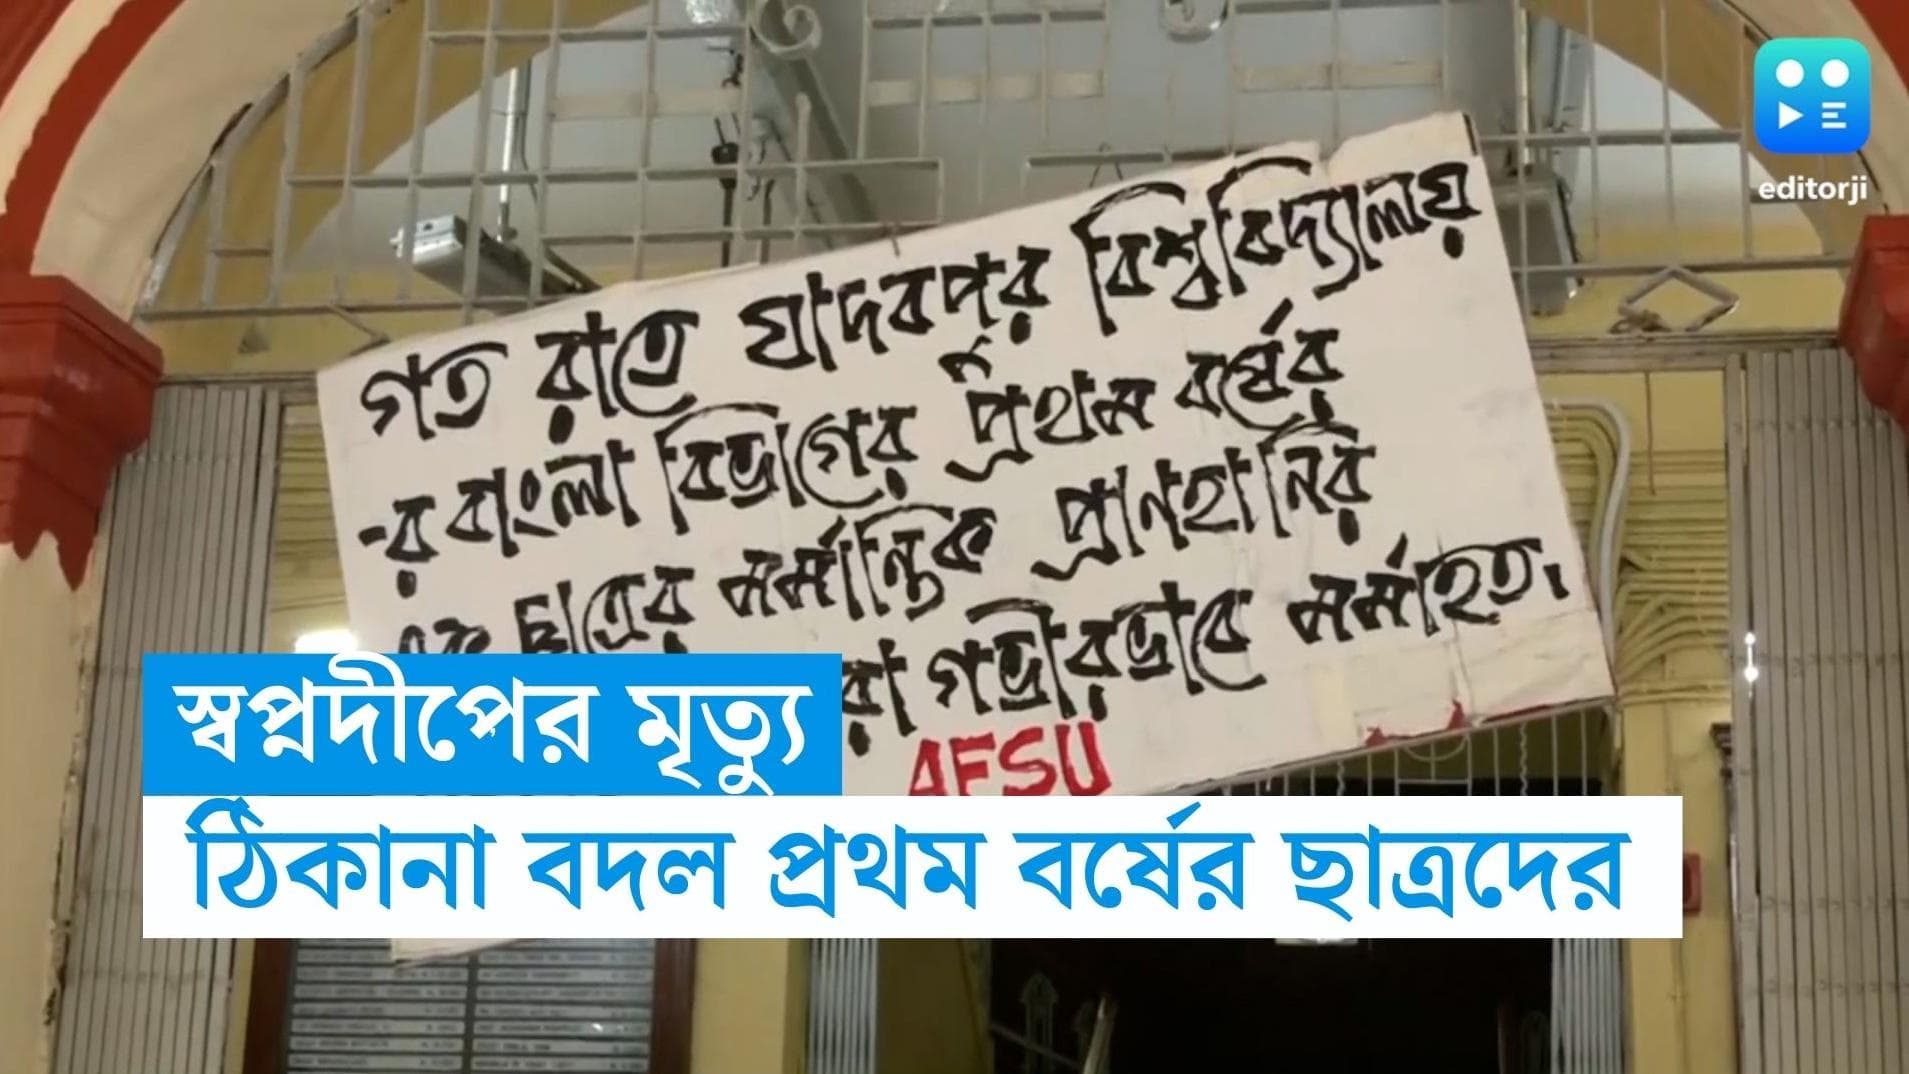 editorji
গত রাতে যাদবপুর বিশ্ববিদ্যালয়
-র বাংলা বিভাগের প্রথম বর্ষের
এক ছাত্রের মর্মান্তিক প্রাণহানির
রা গভীরভাবে মর্মাহত।
AFSU
স্বপ্নদীপের মৃত্যু
ঠিকানা বদল প্রথম বর্ষের ছাত্রদের